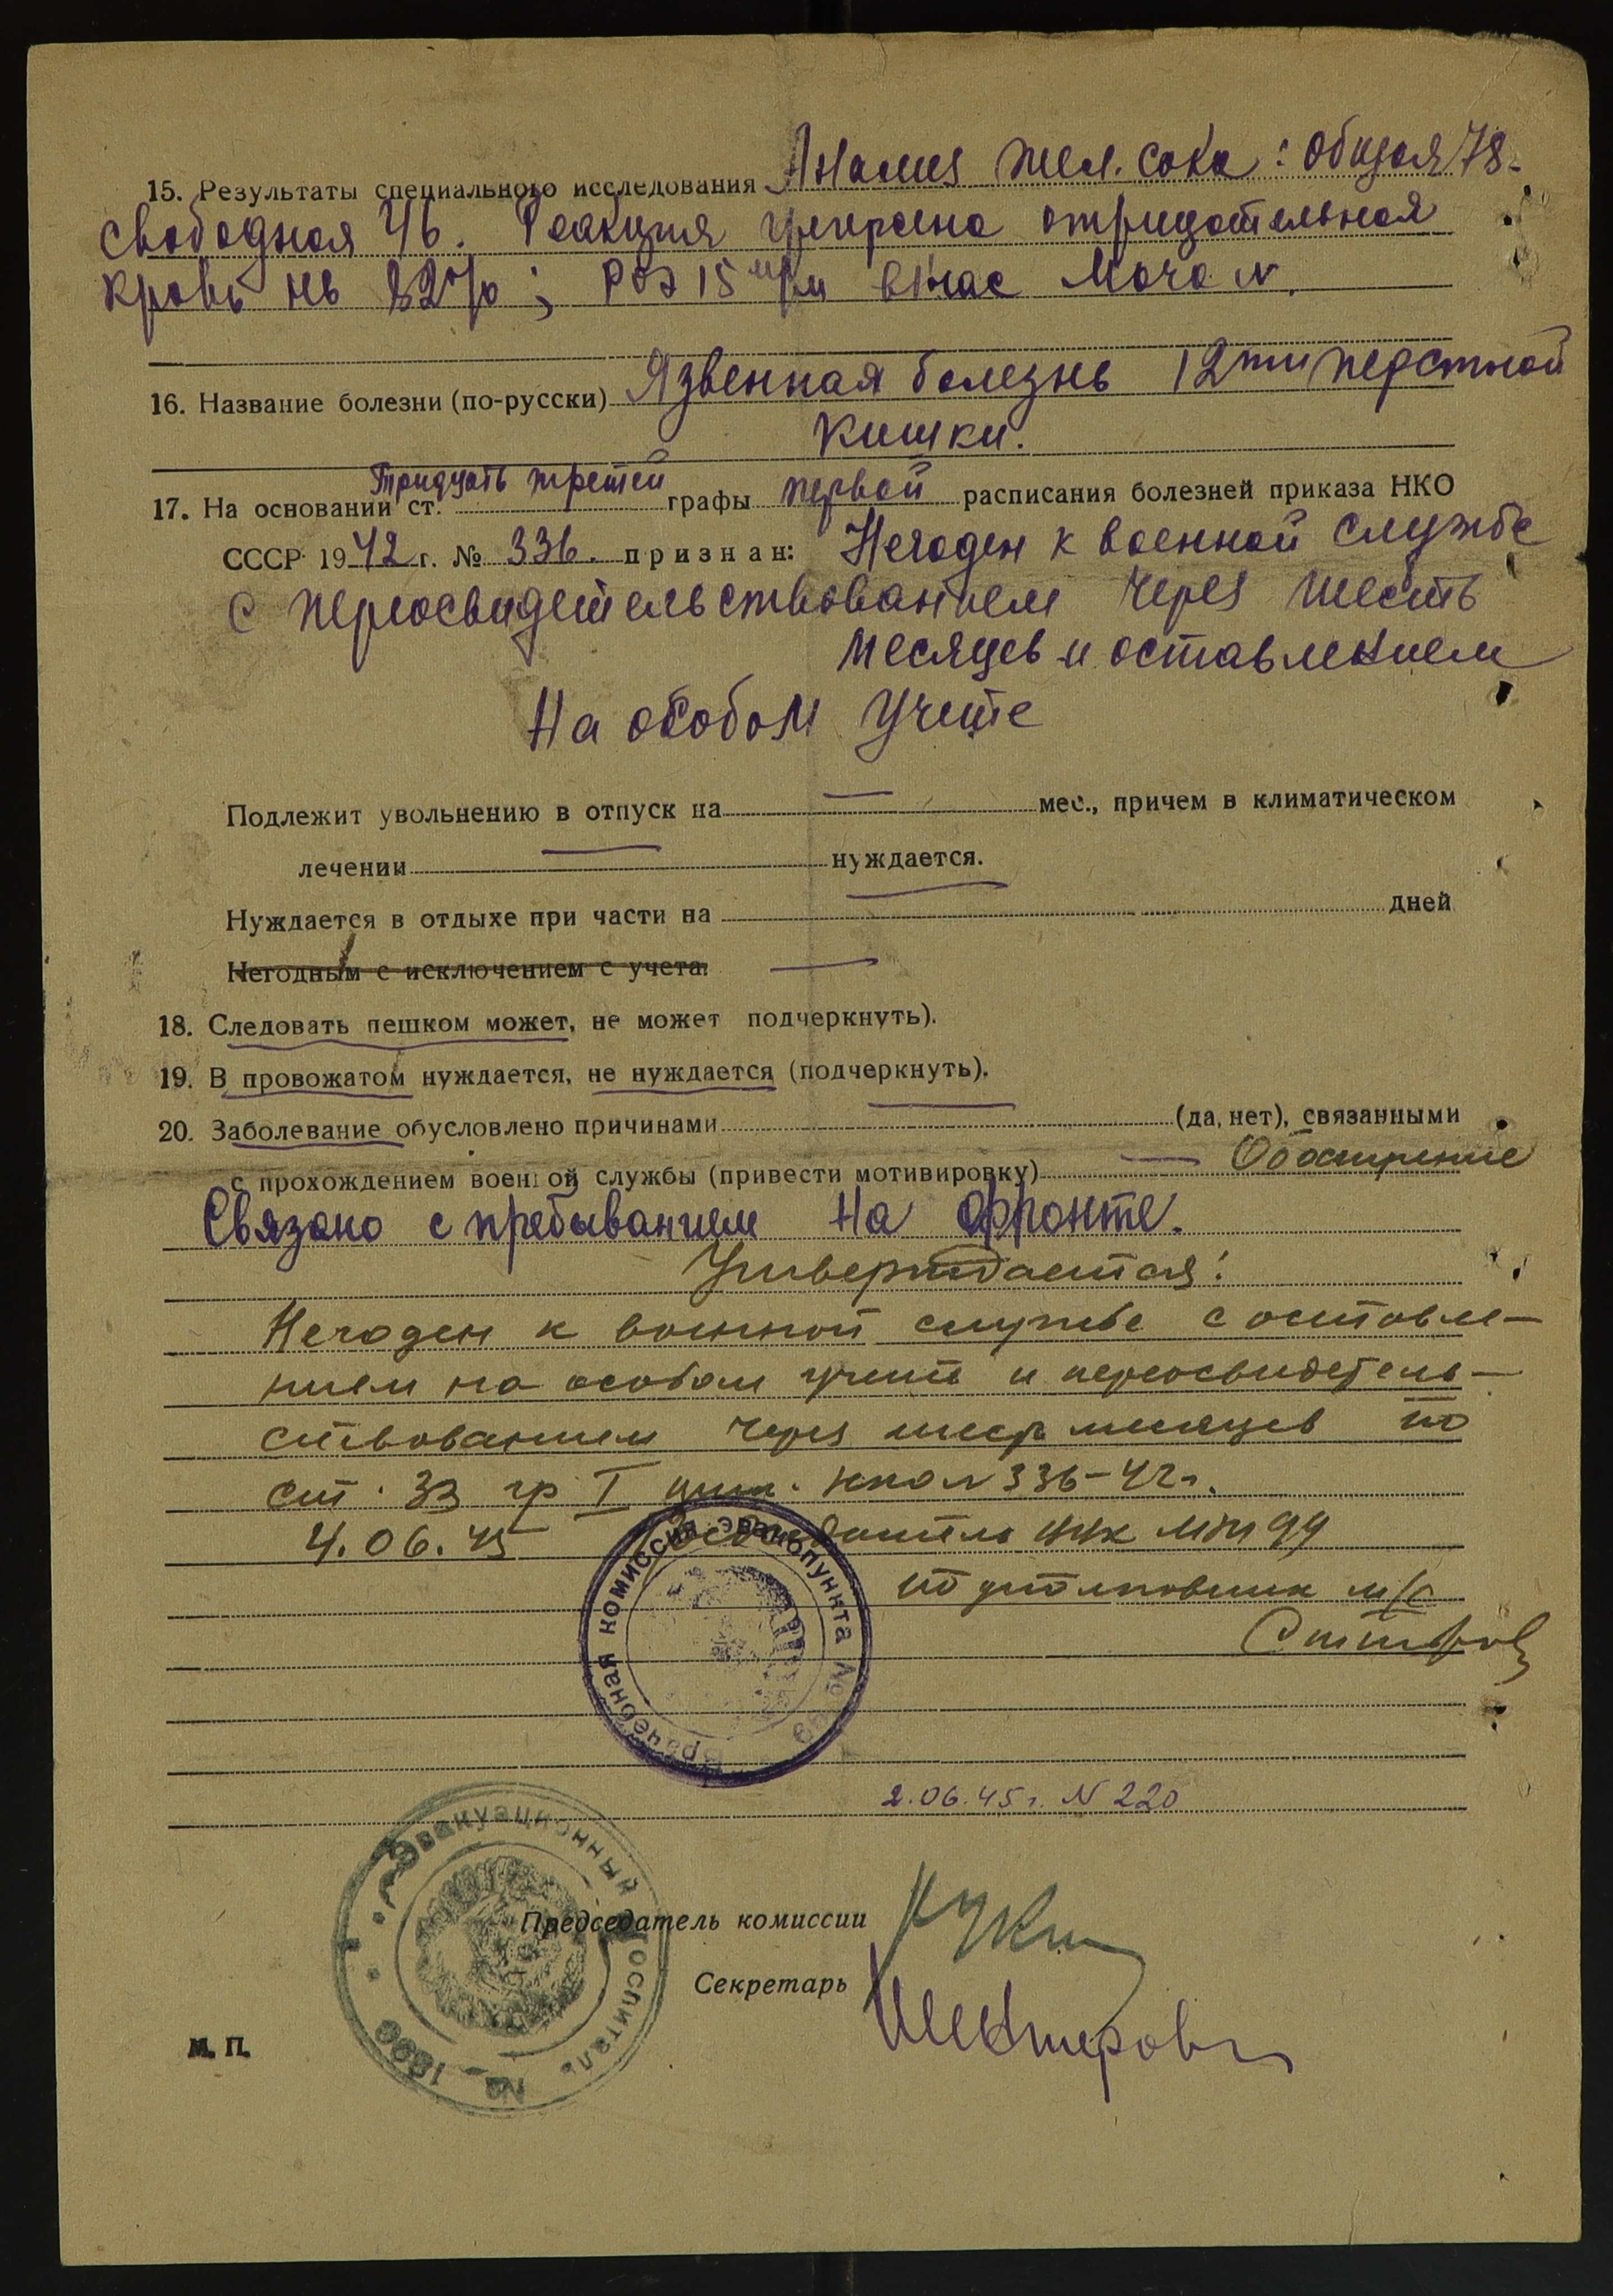 15. Результаты специального исследования Анализ жел. сока: общая 78.
Свободная 46. Реакция Грегерсена отрицательная
Кровь Нв 82%; РОЭ 15 м/м в 1 час Моча N.
16. Название болезни (по-русски) Язвенная болезнь 12ти перстной
кишки.
17. На основании ст. Тридцать третей графы первой расписания болезней приказа НКО
СССР 1942 г. № 336. признан: Негоден к военной службе
с переосвидетельствованием через шесть
месяцев и оставлением
на особом учете
Подлежит увольнению в отпуск на — мес., причем в климатическом
лечении — нуждается.
Нуждается в отдыхе при части на — дней
Негодным с исключением с учета. —
18. Следовать пешком может, не может подчеркнуть).
19. В провожатом нуждается, не нуждается (подчеркнуть).
20. Заболевание обусловлено причинами — (да, нет), связанными
с прохождением военной службы (привести мотивировку) — Обострение
Связано с пребыванием на фронте.
Утверждается:
Негоден к военной службе с оставле-
нием на особом учете и переосвидетель-
ствованием через шесть месяцев по
ст. 33 гр I прик. НКО N 336-42 г.
4.06.45 Председатель
подполковник м/с
Врачебная комиссия эвакопункта №
2.06.45 г. N 220
Эвакуационный госпиталь № 1890
Председатель комиссии
Секретарь
М. П.